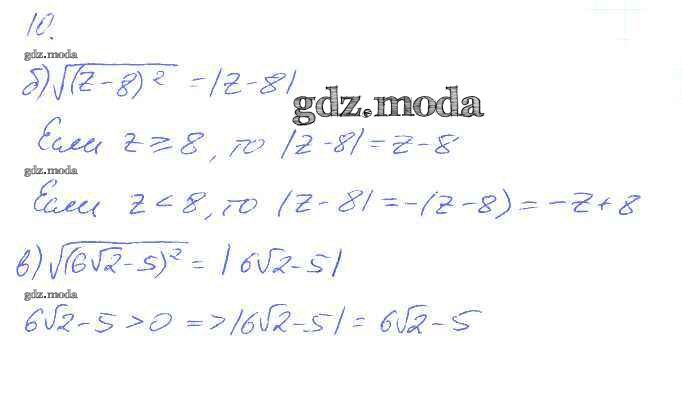 10.
gdz.moda
б) √(z-8)² = |z-8|
gdz.moda
Если z ≥ 8, то |z-8| = z-8
gdz.moda
Если z < 8, то |z-8| = -(z-8) = -z+8
в) √(6√2-5)² = |6√2-5|
gdz.moda
6√2-5>0 => |6√2-5| = 6√2-5